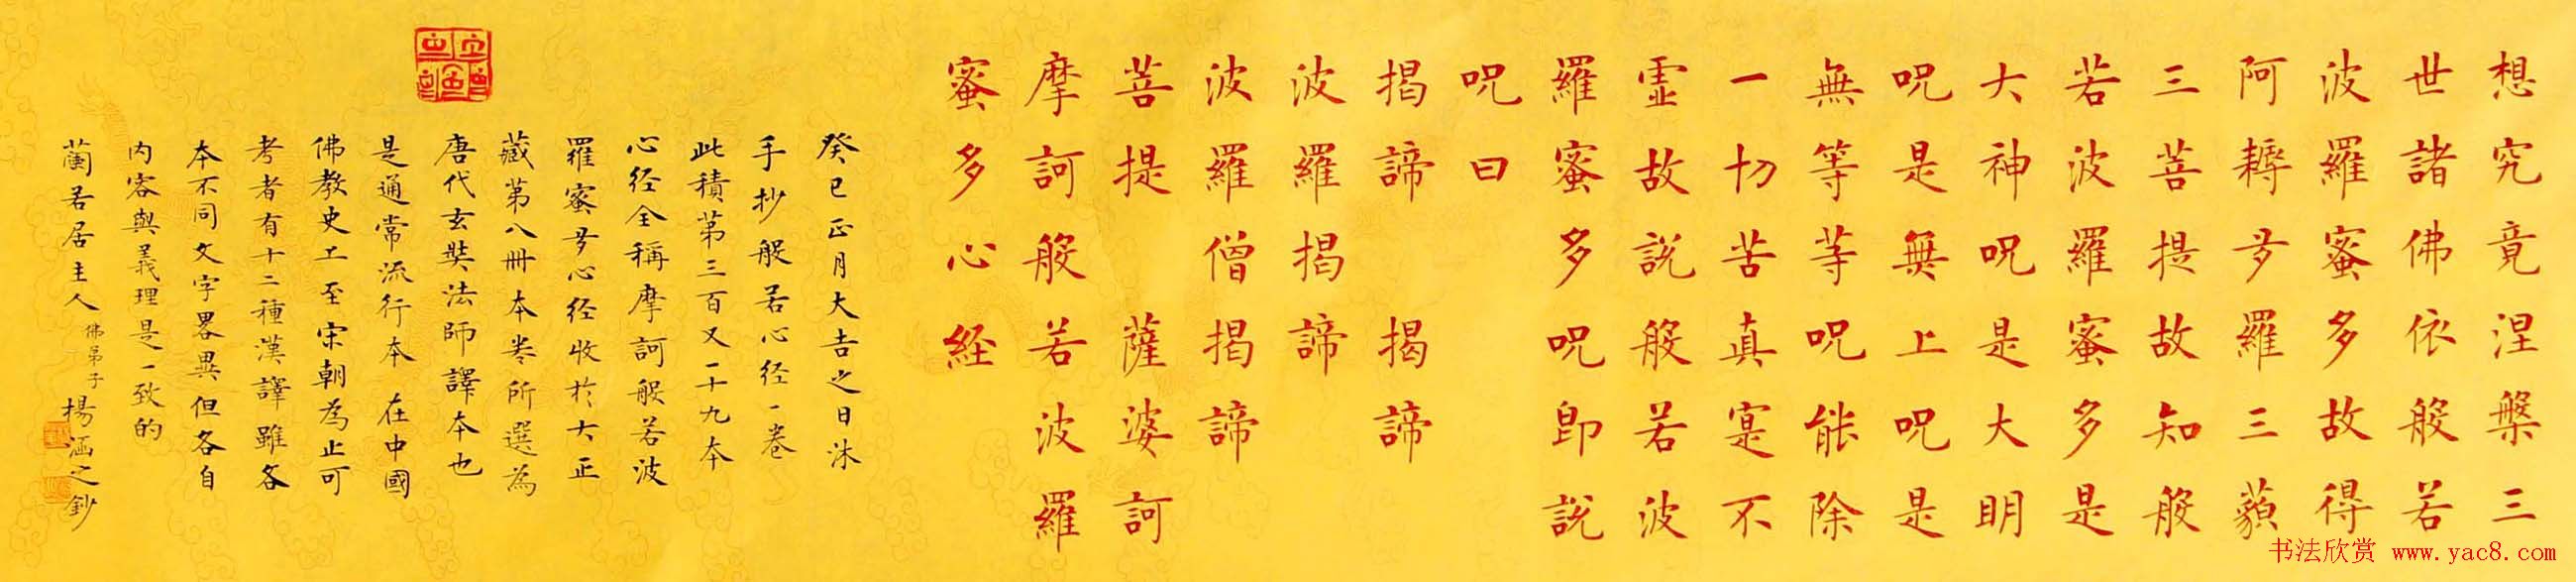 想究竟涅槃三
世諸佛依般若
波羅蜜多故得
阿耨多羅三藐
三菩提故知般
若波羅蜜多是
大神呪是大明
呪是無上呪是
無等等呪能除
一切苦真寔不
虛故說般若波
羅蜜多呪即說
呪曰
揭諦 揭諦
波羅揭諦
波羅僧揭諦
菩提 薩婆訶
摩訶般若波羅
蜜多心経
癸巳正月大吉之日沐
手抄般若心经一卷
此積第三百又一十九本
心经全稱摩訶般若波
羅蜜多心经收於大正
藏第八冊本卷所選為
唐代玄奘法師譯本也
是通常流行本 在中國
佛教史上至宋朝為止可
考者有十二種漢譯雖各
本不同文字畧異但各自
内容與義理是一致的
蘭若居主人 佛弟子 楊涵之鈔
书法欣赏 www.yac8.com